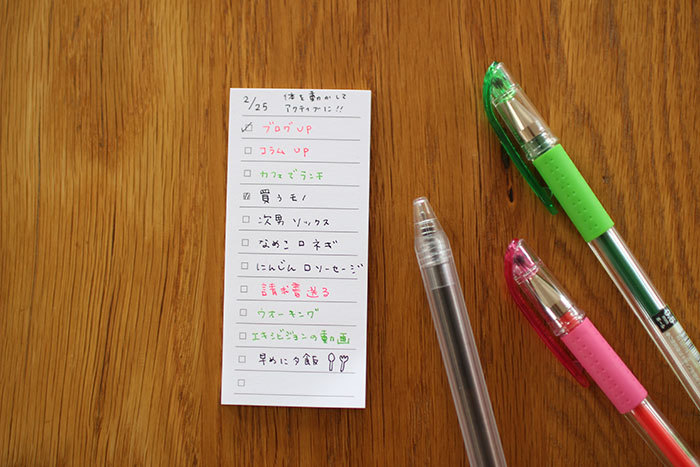 2/25 体を動かして
アクティブに!!
☑ ブログ UP
☐ コラム UP
☐ カフェでランチ
☒ 買うモノ
☐ 次男 ソックス
☐ なめこ ☐ ネギ
☐ にんじん ☐ ソーセージ
☐ 請求書送る
☐ ウオーキング
☐ エキシビジョンの動画
☐ 早めに夕飯
☐